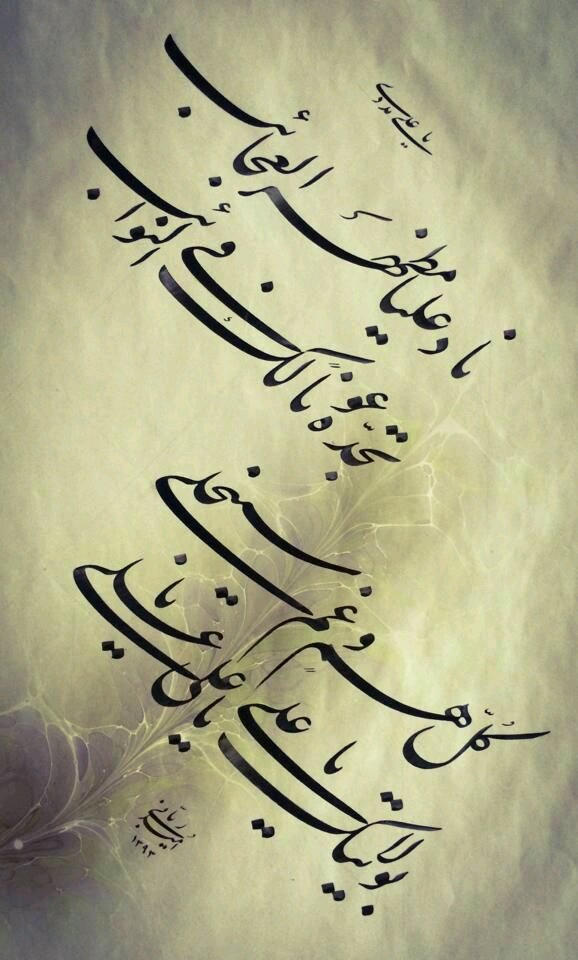 یا علی مدد
ناد علیا مظهر العجائب
تجده عونا لک فی النوائب
کل هم و غم سینجلی
بولایتک یا علی یا علی یا علی
ربانی
۱۳۹۳